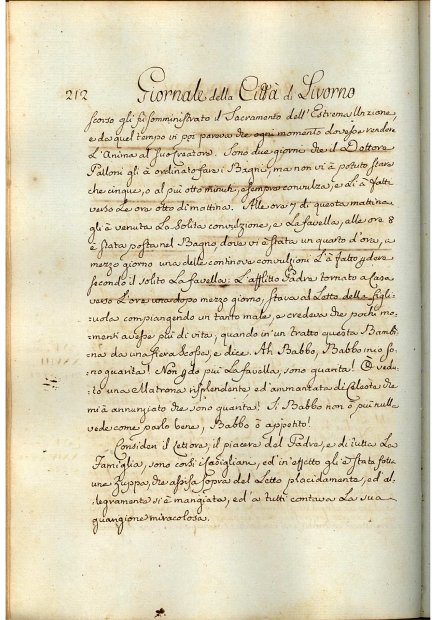 212 Giornale della Città di Livorno
scorso gli fù somministrato il Sacramento dell'Estrema Unzione,
e da quel tempo in poi pareva che ogni momento dovesse rendere
L'Anima al suo Creatore. Sono due giorni che il Dottore
Palloni gli à ordinato fare i Bagni, ma non vi à potuto stare
che cinque, o al più otto minuti, e sempre convulza, e Li à fatti
verso Le ore otto di mattina. Alle ore 7 di questa mattina
gli è venuta La Solita convulzione, e La favella, alle ore 8
è stata posta nel Bagno, dove vi è stata un quarto d'ora, a
mezzo giorno una delle continove convulzioni L'à fatto perdere
secondo il solito La favella. L'afflitto Padre tornato a Casa
verso L'ore dopo mezzo giorno, stava al Letto della figli:
:uola compiangendo un tanto male, e credeva che pochi mo:
menti avesse più di vita, quando in un tratto questa Bambi:
na da una fiera scossa, e dice. Ah Babbo, Babbo mio so:
no guarita! Non perdo più La favella, sono guarita! Ò vedu:
to una Matrona risplendente, ed ammantata di Celeste che
mi à annunziato che sono guarita! Sì Babbo non ò più nulla
vede come parlo bene, Babbo ò appetito!
Consideri il Lettore, il piacere del Padre, e di tutta La
Famiglia, sono corsi i Casigliani, ed in effetto gli è stata fatta
una Zuppa, che assisa sopra del Letto placidamente, ed al:
legramente si è mangiata, ed a tutti contava La sua
guarigione miracolosa.